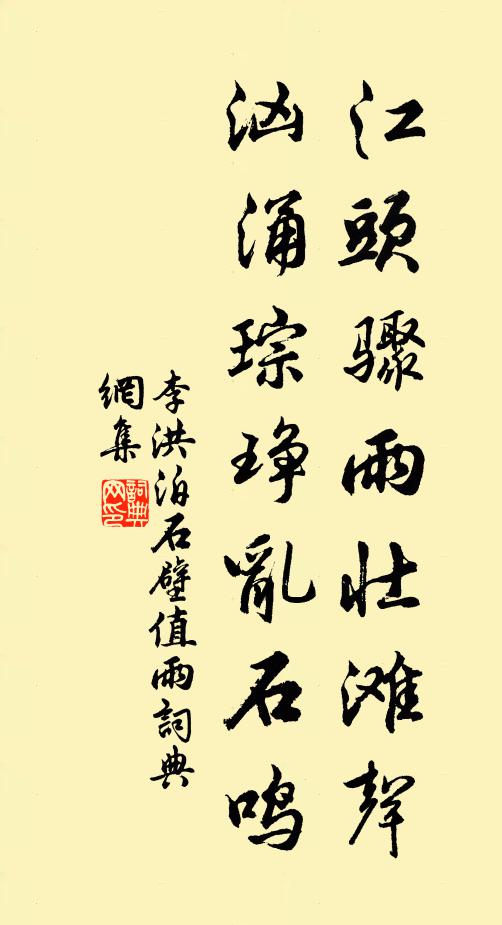 江頭驟雨壮滩聲
汹涌琮琤亂石鳴
李洪泊石壁值雨詞典
網集
詞典
网印